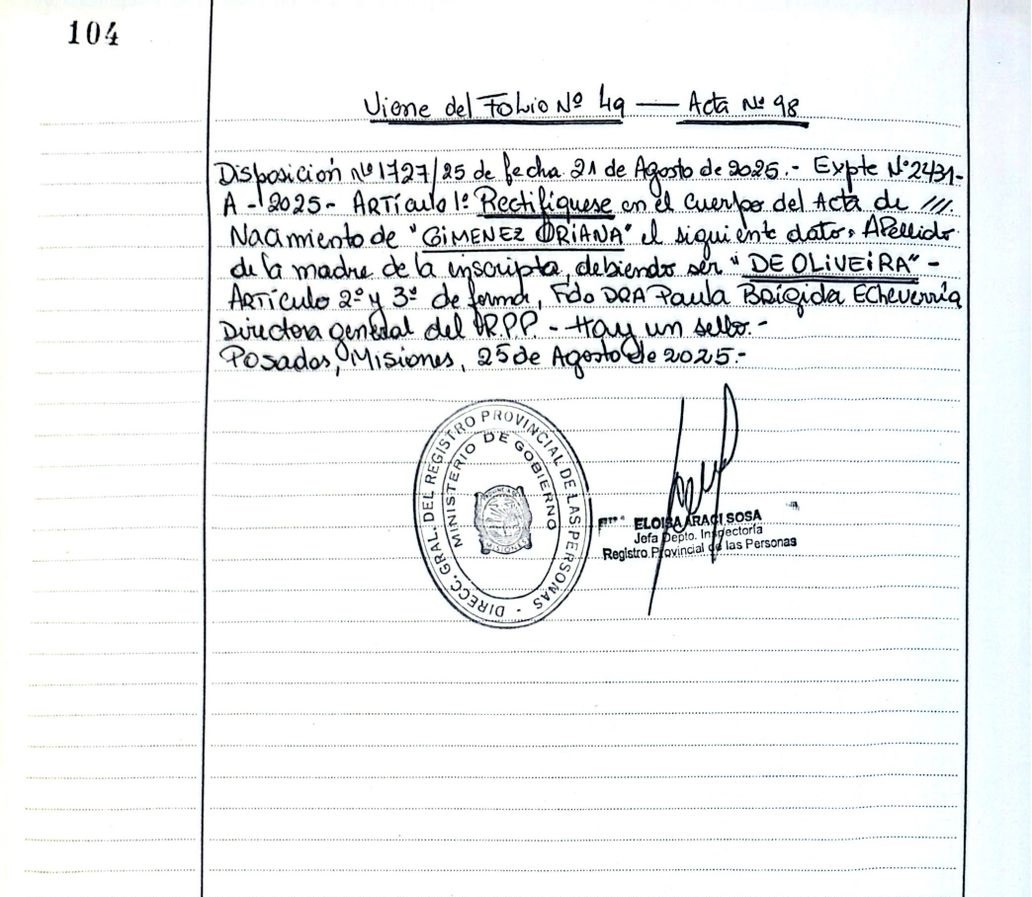 104
Viene del Folio Nº 49 — Acta Nº 98
Disposición Nº 1727/25 de fecha 21 de Agosto de 2025.- Expte Nº 2431-
A - 2025 - Artículo 1º Rectifíquese en el cuerpo del Acta de ///.
Nacimiento de "GIMENEZ ORIANA" el siguiente dato: Apellido
de la madre de la inscripta, debiendo ser "DE OLIVEIRA" -
Artículo 2º y 3º de forma, Fdo DRA Paula Brígida Echeverría
Directora general del R.P.P. - Hay un sello.-
Posadas, Misiones, 25 de Agosto de 2025.-
DIRECC. GRAL. DEL REGISTRO PROVINCIAL DE LAS PERSONAS -
MINISTERIO DE GOBIERNO
MISIONES
ELOISA ARACI SOSA
Jefa Depto. Inspectoría
Registro Provincial de las Personas